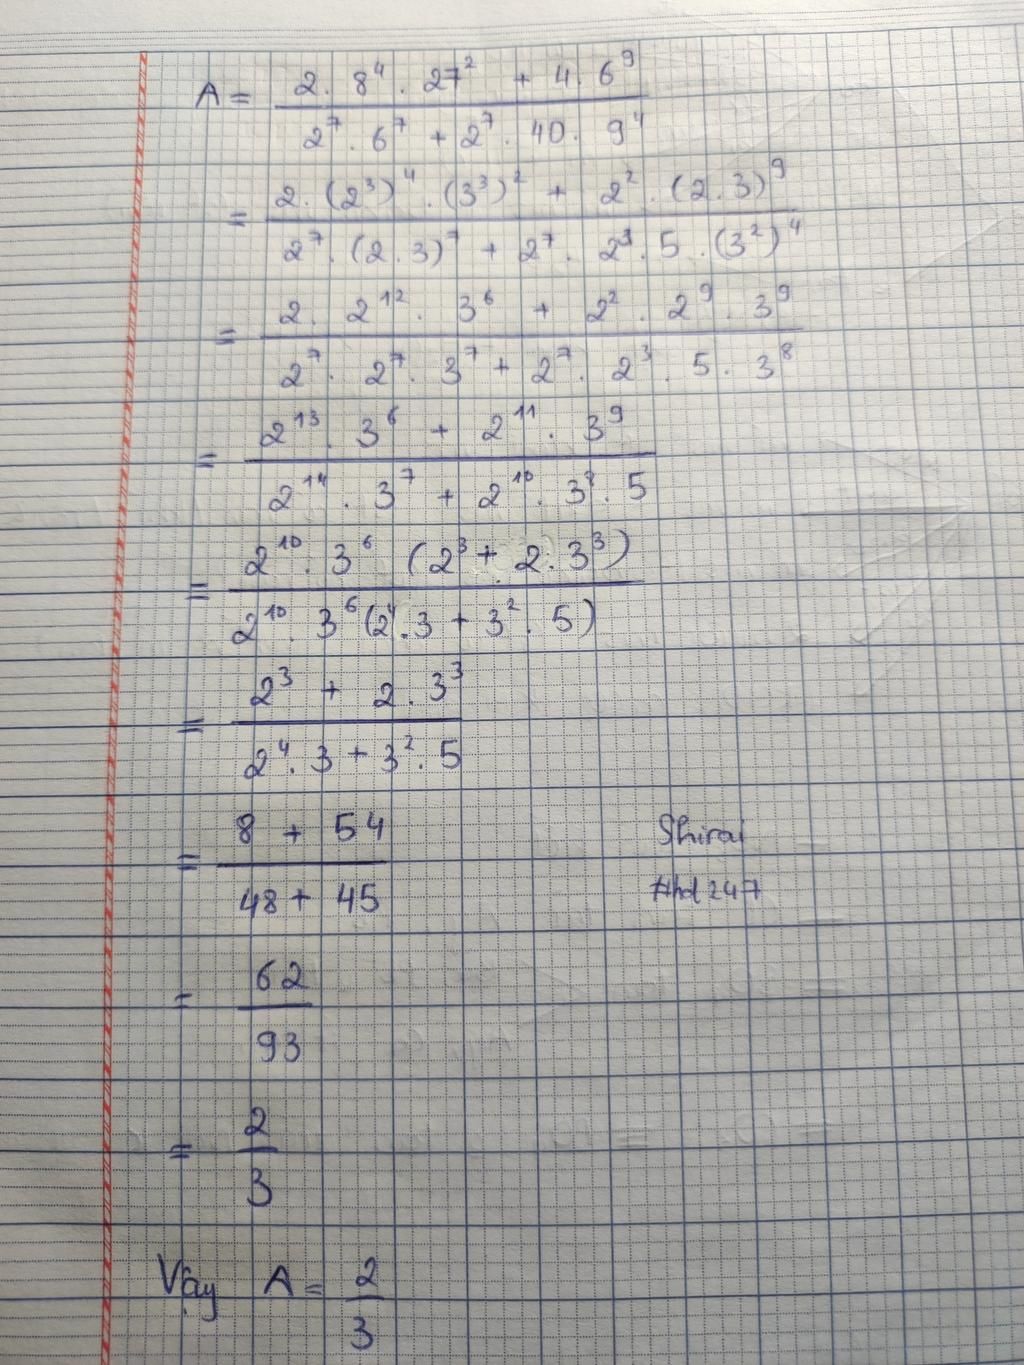 A = \frac{2 . 8^4 . 27^2 + 4 . 6^9}{2^7 . 6^7 + 2^7 . 40 . 9^4}
= \frac{2 . (2^3)^4 . (3^3)^2 + 2^2 . (2 . 3)^9}{2^7 . (2 . 3)^7 + 2^7 . 2^3 . 5 . (3^2)^4}
= \frac{2 . 2^{12} . 3^6 + 2^2 . 2^9 . 3^9}{2^7 . 2^7 . 3^7 + 2^7 . 2^3 . 5 . 3^8}
= \frac{2^{13} . 3^6 + 2^{11} . 3^9}{2^{14} . 3^7 + 2^{10} . 3^8 . 5}
= \frac{2^{10} . 3^6 (2^3 + 2 . 3^3)}{2^{10} . 3^6 (2^4 . 3 + 3^2 . 5)}
= \frac{2^3 + 2 . 3^3}{2^4 . 3 + 3^2 . 5}
= \frac{8 + 54}{48 + 45}
Shirai
#hd247
= \frac{62}{93}
= \frac{2}{3}
Vậy A = \frac{2}{3}